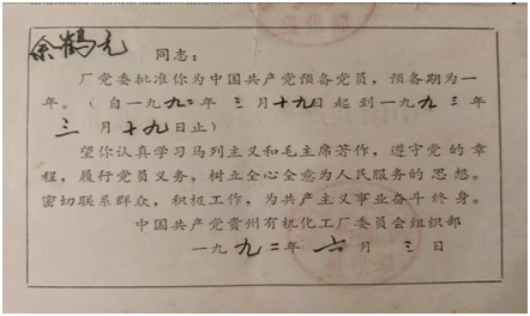 余鹤元 同志:
厂党委批准你为中国共产党预备党员,预备期为一
年。(自一九九二年 三月十九日起到一九九三年
三月十九日止)
望你认真学习马列主义和毛主席著作,遵守党的章
程,履行党员义务,树立全心全意为人民服务的思想。
密切联系群众,积极工作,为共产主义事业奋斗终身。
中国共产党贵州有机化工厂委员会组织部
一九九二年 六月 三日